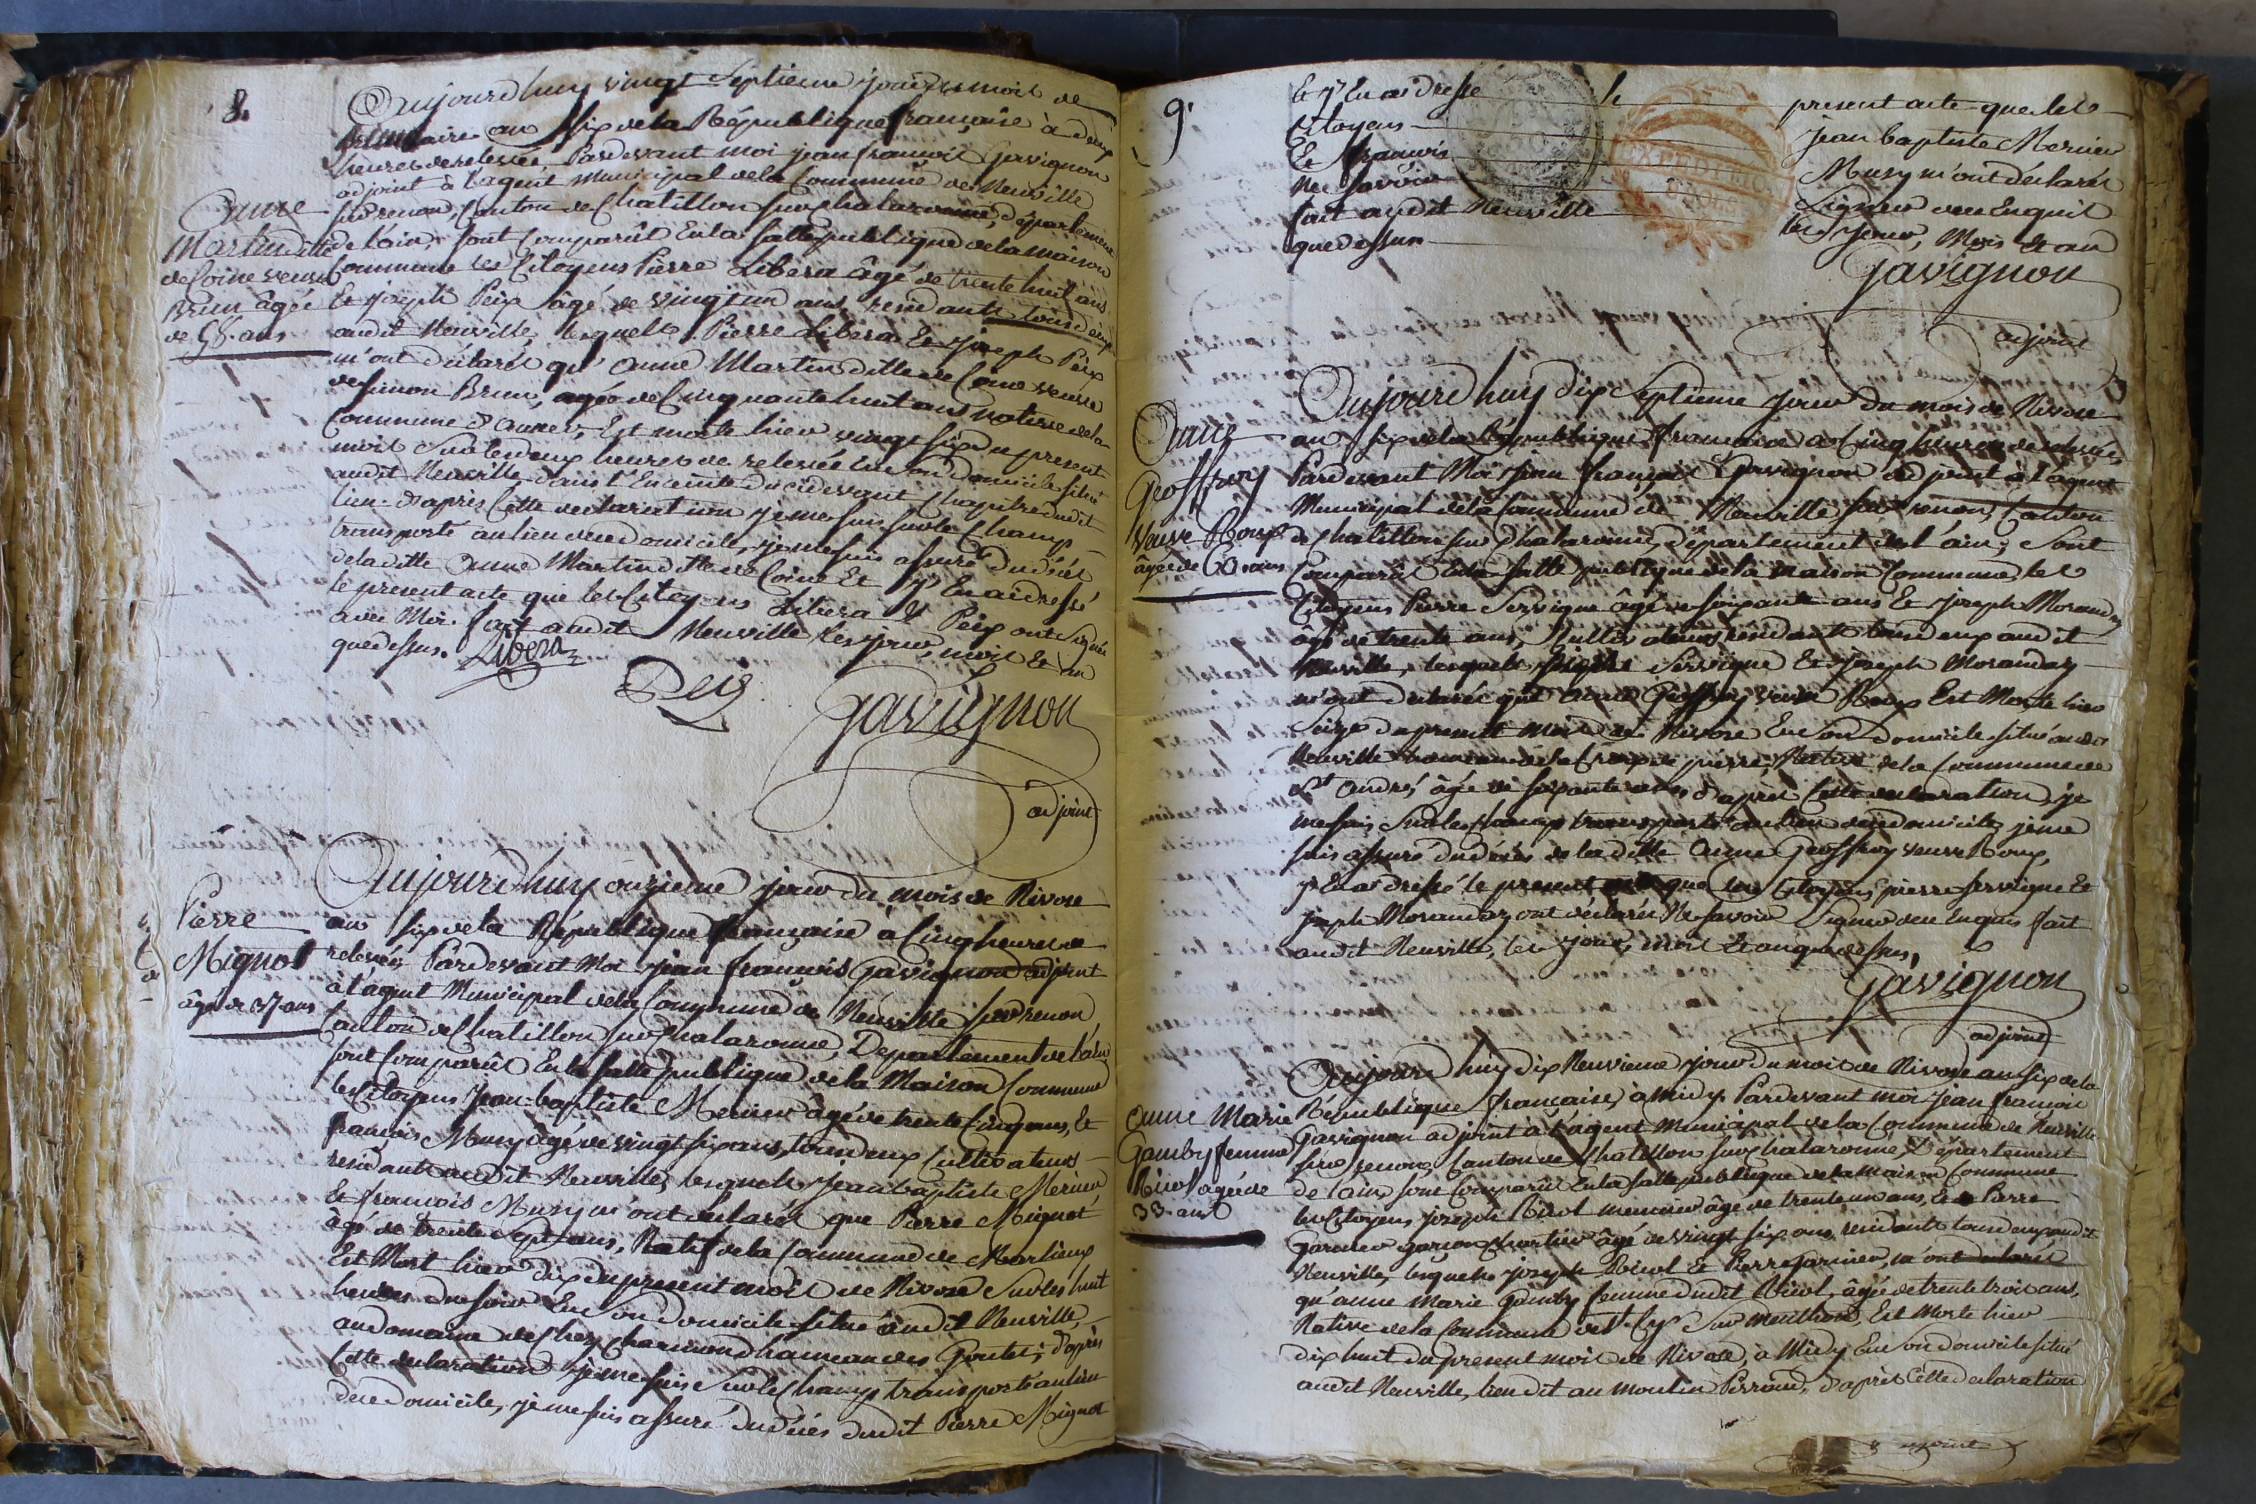 8.
Aujourd'huy vingt Septieme jour du mois de
frimaire an Six de la République française à deux
heures de relevée Pardevant moi jean françois Gavignon
adjoint à l'agent Municipal de la Commune de Neuville
sur renon, Canton de Chatillon sur Chalaronne, département
de l'ain, sont Comparût En la Salle publique de la maison
Commune les Citoyens Pierre Libera âgé de trente huit ans
Et joseph Peix âgé de vingt un ans residants tous deux
audit Neuville, lesquels Pierre Libera Et joseph Peix
m'ont déclarés qu'anne Martin ditte de Coine veuve
de Simon Brun, agée de Cinquante huit ans native de la
Commune d'                Est morte hier vingt six du present
mois Sur les deux heures de relevée En son domicile situé
audit Neuville dans l'Enceinte du cidevant Chapitre dudit
lieu. d'après Cette declaration je me suis sur le Champ
transporté au lieu dudit domicile, je me suis assuré du décès
de la ditte Anne Martin ditte de Coine Et j'En ai dressé
le present acte que les Citoyens Libera Et Peix ont Signés
avec Moi. fait audit Neuville les jour, mois Et an
que dessus.
Libera
Peix
Gavignon
adjoint
Anne
Martin ditte
de Coine veuve
Brun âgée
de 58. ans
Aujourd'huy onzieme jour du mois de Nivose
an Six de la République française à Cinq heures de
relevée Pardevant Moi jean françois Gavignon adjoint
à l'agent Municipal de la Commune de Neuville sur renon
Canton de Chatillon sur Chalaronne, Département de l'ain
sont Comparût En la Salle publique de la Maison Commune
les Citoyens Jean-baptiste Mercier âgé de trente Cinq ans, Et
françois Mury âgé de vingt six ans, tous deux Cultivateurs
residants audit Neuville, lesquels Jean baptiste Mercier
Et françois Mury m'ont declarés que Pierre Mignot
âgé de trente Sept ans, Natif de la Commune de Marlieux
Est Mort hier dix du present mois de Nivose Sur les huit
heures du soir En son domicile situé audit Neuville,
au domaine de Chez Charmond hameau des Goutes; d'après
Cette declaration je me suis Sur le Champ transporté au lieu
dudit domicile, je me suis assuré du décès dudit Pierre Mignot
Pierre
Mignot
âgé de 37 ans
9.
Et j'En ai dressé le present acte que les
Citoyens jean baptiste Mercier
Et françois Mury m'ont déclarés
Ne Savoir Signer de ce Enquis
fait audit Neuville les jour, Mois Et an
que dessus
Gavignon
adjoint
Aujourd'huy dix Septieme jour du mois de Nivose
an Six de la République française à Cinq heures de relevée
Pardevant Moi jean françois Gavignon adjoint à l'agent
Municipal de la Commune de Neuville sur renon, Canton
de Chatillon sur Chalaronne, Département de l'ain; sont
Comparût En la Salle publique de la maison Commune, les
Citoyens Pierre Servigne âgé de soixante ans Et joseph Moranday
âgé de trente ans, Cultivateurs residants tous deux audit
Neuville, lesquels Pierre Servigne Et joseph Moranday
m'ont declarés que anne Geoffroy veuve Roux Est Morte hier
Seize du present mois de Nivose En son domicile situé audit
Neuville hameau de la                  Native de la Commune de
St André, âgée de soixante ans d'après Cette declaration, je
me suis Sur le Champ transporté au lieu dudit domicile, je me
suis assuré du décès de la ditte Anne Geoffroy veuve Roux,
j'En ai dressé le present acte que les Citoyens pierre Servigne Et
joseph Moranday ont déclarés Ne Savoir Signer de ce Enquis fait
audit Neuville, les jour, mois Et an que dessus,
Gavignon
adjoint
Anne
Geoffroy
Veuve Roux
âgée de 60. ans
Aujourd'huy dix Neuvieme jour du mois de Nivose an six de la
République française, à Midy. Pardevant moi jean françois
Gavignon adjoint à l'agent Municipal de la Commune de Neuville
sur renon, Canton de Chatillon sur Chalaronne Département
de l'ain, sont Comparût En la Salle publique de la maison Commune
les Citoyens joseph Ricol meunier âgé de trente un ans, Et Pierre
Garnier garçon           âgé de vingt six ans, residants tous deux audit
Neuville, lesquels joseph Ricol Et Pierre Garnier, m'ont declarés
qu'anne Marie Gamby femme dudit Ricol, âgée de trente trois ans,
Native de la Commune de St Cyr Sur Menthon, Est Morte hier
dix huit du present mois de Nivose, à Midy En son domicile situé
audit Neuville, lieu dit au moulin                  d'après Cette declaration
anne Marie
Gamby femme
Ricol agée de
33. ans
adjoint